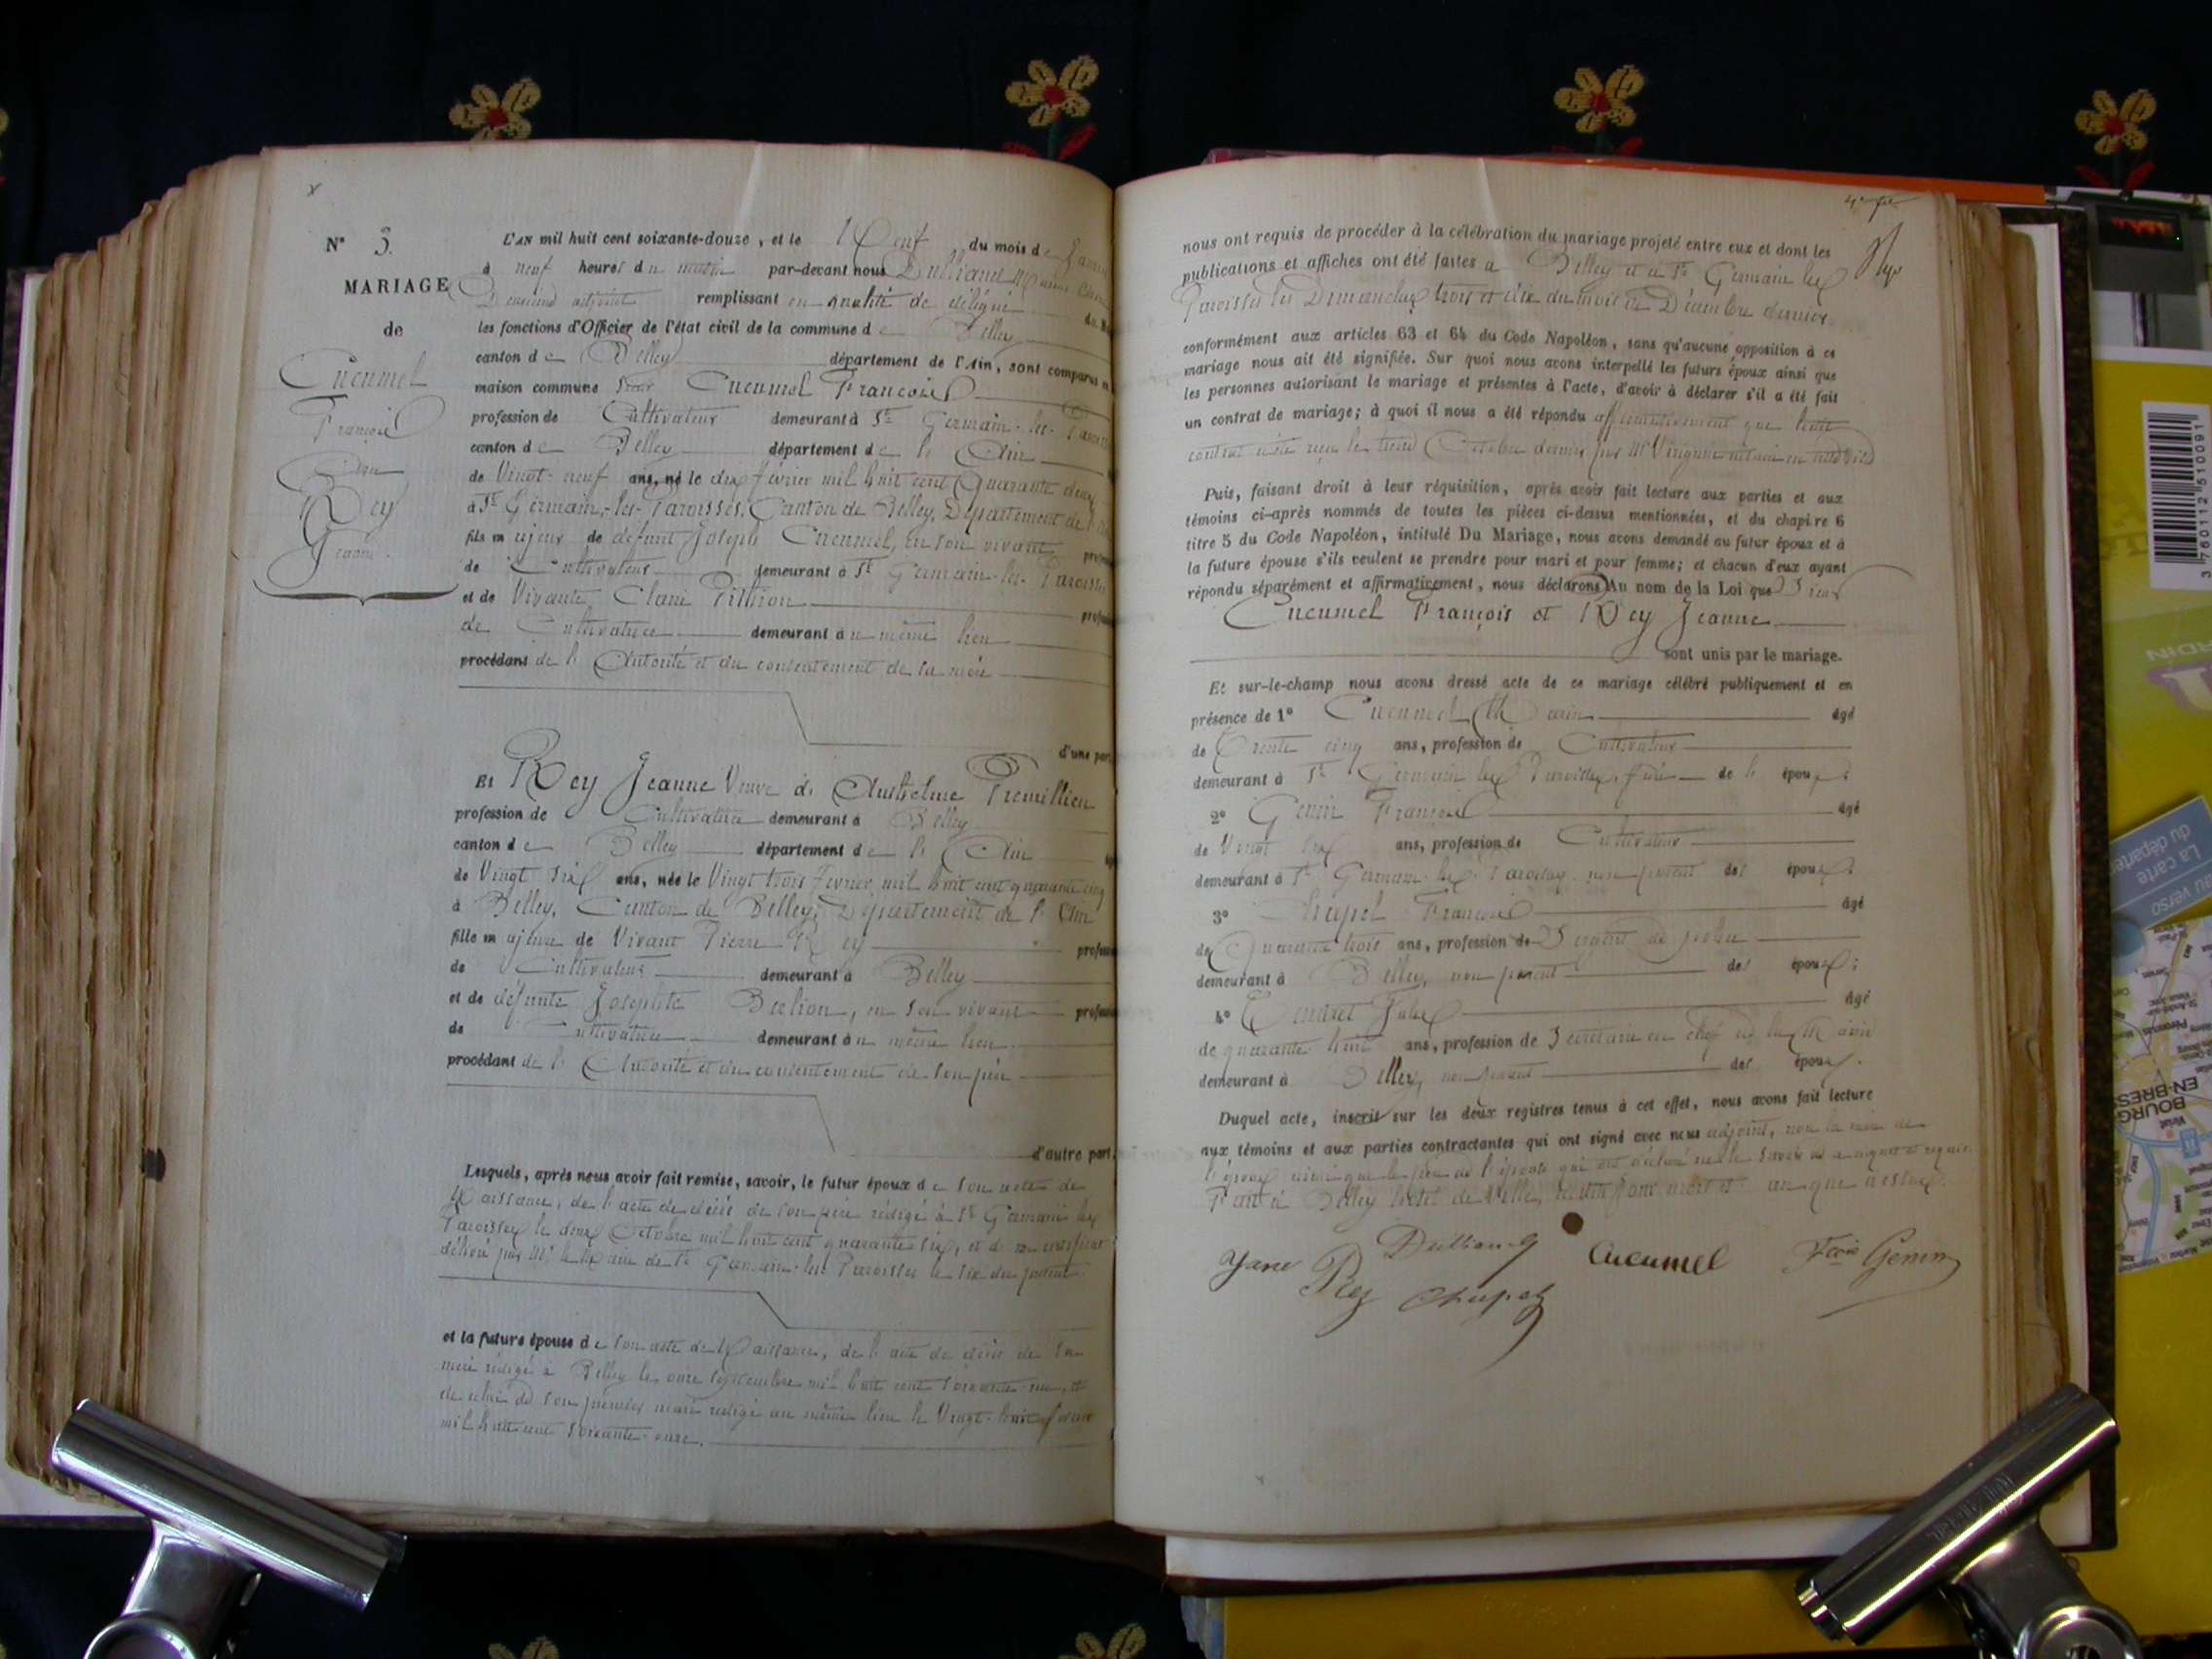 N° 3.
MARIAGE
de
Cucumel
François
Rey
Jeanne.
L'AN mil huit cent soixante-douze, et le Neuf du mois de
à neuf heures du matin par-devant nous
adjoint remplissant en qualité de délégué
les fonctions d'Officier de l'état civil de la commune de Belley
canton de Belley département de l'Ain, sont comparus
maison commune Sieur Cucumel François
profession de Cultivateur demeurant à St Germain-les-
canton de Belley département de l'Ain
de Vingt-neuf ans, né le dix février mil huit cent Quarante deux
à St Germain-les-Paroisses, Canton de Belley, Département de
fils majeur de défunt Joseph Cucumel, en son vivant
de Cultivateur demeurant à St Germain-les-Paroisses
et de Vivante
de Cultivatrice demeurant au même lieu
procédant de l'Autorité et du consentement de sa mère
d'une part
Et Rey Jeanne Veuve de Anthelme Premillieu
profession de Cultivatrice demeurant à Belley
canton de Belley département de l'Ain
de Vingt six ans, née le Vingt trois février mil huit cent quarante cinq
à Belley, Canton de Belley, Département de l'Ain
fille majeure de Vivant Pierre Rey
de Cultivateur demeurant à Belley
et de défunte Josephte en son vivant
de Cultivatrice demeurant au même lieu
procédant de l'Autorité et du consentement de son père
d'autre part.
Lesquels, après nous avoir fait remise, savoir, le futur époux de son acte de
Naissance, de l'acte de décès de son père rédigé à St Germain les
Paroisses le deux Octobre mil huit cent quarante six, et d'un certificat
délivré par Mr le Maire de St Germain-les-Paroisses le six du présent
et la future épouse de son acte de Naissance, de l'acte de décès de sa
mère rédigé à Belley le onze septembre mil huit cent soixante un, et
de celui de son premier mari rédigé au même lieu le Vingt-huit février
mil huit cent soixante-onze.
nous ont requis de procéder à la célébration du mariage projeté entre eux et dont les
publications et affiches ont été faites à Belley et à St Germain les
Paroisses les Dimanches trois et dix du mois de Décembre dernier
conformément aux articles 63 et 64 du Code Napoléon, sans qu'aucune opposition à ce
mariage nous ait été signifiée. Sur quoi nous avons interpellé les futurs époux ainsi que
les personnes autorisant le mariage et présentes à l'acte, d'avoir à déclarer s'il a été fait
un contrat de mariage; à quoi il nous a été répondu affirmativement que leur
contrat a été reçu le Octobre dernier par Me notaire en
Puis, faisant droit à leur réquisition, après avoir fait lecture aux parties et aux
témoins ci-après nommés de toutes les pièces ci-dessus mentionnées, et du chapitre 6
titre 5 du Code Napoléon, intitulé Du Mariage, nous avons demandé au futur époux et à
la future épouse s'ils veulent se prendre pour mari et pour femme; et chacun d'eux ayant
répondu séparément et affirmativement, nous déclarons Au nom de la Loi que Sieur
Cucumel François et Rey Jeanne
sont unis par le mariage.
Et sur-le-champ nous avons dressé acte de ce mariage célébré publiquement et en
présence de 1° Cucumel Marin âgé
de Trente cinq ans, profession de Cultivateur
demeurant à St Germain les Paroisses, frère de l'époux;
2° Genin François âgé
de Vingt six ans, profession de Cultivateur
demeurant à St Germain les Paroisses non parent des époux;
3° Chapel François âgé
de Quarante trois ans, profession de Sergent de police
demeurant à Belley, non parent des époux;
4° Jules âgé
de quarante huit ans, profession de Secrétaire en chef de la Mairie
demeurant à Belley, non parent des époux.
Duquel acte, inscrit sur les deux registres tenus à cet effet, nous avons fait lecture
aux témoins et aux parties contractantes qui ont signé avec nous adjoint, non la mère de
l'époux ainsi que le père de l'épouse qui ont déclaré ne le savoir de ce enquis et requis.
Fait à Belley hôtel de Ville, les dits jour mois et an que dessus.
Cucumel
Fçois Genin
Rey
Chapel
3 760112 510091
La carte
du départe
au verso
BOURG-
EN-BRES